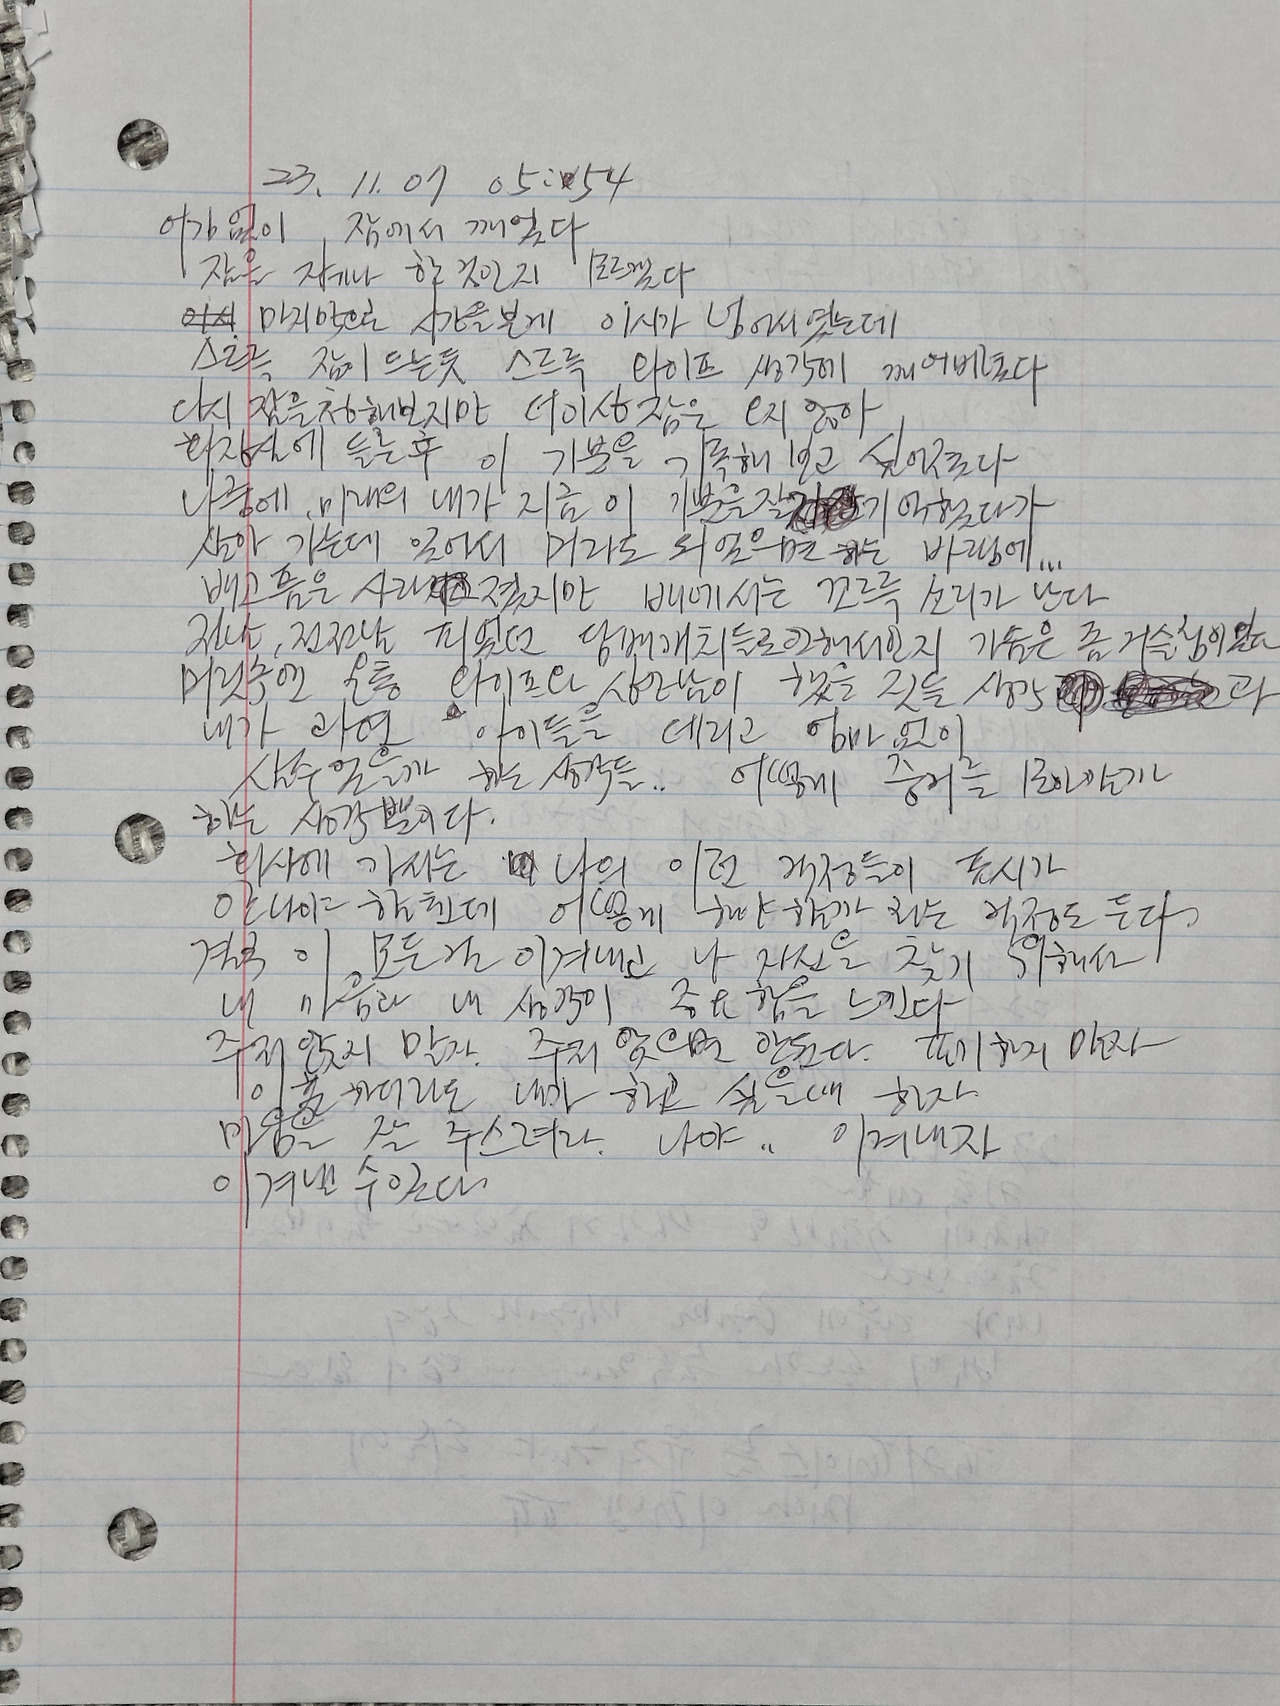 23. 11. 07 05:54
어김없이 잠에서 깨었다
잠을 자기나 한것인지 모르겠다
마지막으로 시간을본게 이시가 넘어서였는데
스르륵 잠이 드는듯 스르륵 와이프 생각에 깨어버렸다
다시 잠을청해보지만 더이상 잠은 오지 않아
화장실에 들른후 이 기분을 기록해 보고 싶어졌다
나중에, 미래의 내가 지금 이 기분을 잘 기억했다가
살아 가는데 있어서 머라도 되었으면 하는 바램에...
배고픔은 사라졌지만 배에서는 꼬르륵 소리가 난다
전날, 전전날 피웠던 담배개치들로인해서인지 가슴은 좀 거슬침이있다
머릿속엔 온통 와이프와 상간남이 했을 짓들 생각과
내가 과연 아이들을 데리고 엄마 없이
살수 있을까 하는 생각들.. 어떻게 증거를 모아갈까
하는 생각뿐이다.
회사에 가서는 나의 이런 걱정들이 표시가
안나야 할텐데 어떻게 해야 할까 하는 걱정도 든다.
결국 이 모든걸 이겨내고 나 자신을 찾기 위해선
내 마음과 내 생각이 중요함을 느낀다
주저앉지 말자. 주저 앉으면 안된다. 포기하지 말자
이혼하더라도 내가 하고 싶을때 하자
마음을 잘 추스려라. 나야.. 이겨내자
이겨낼 수있다.